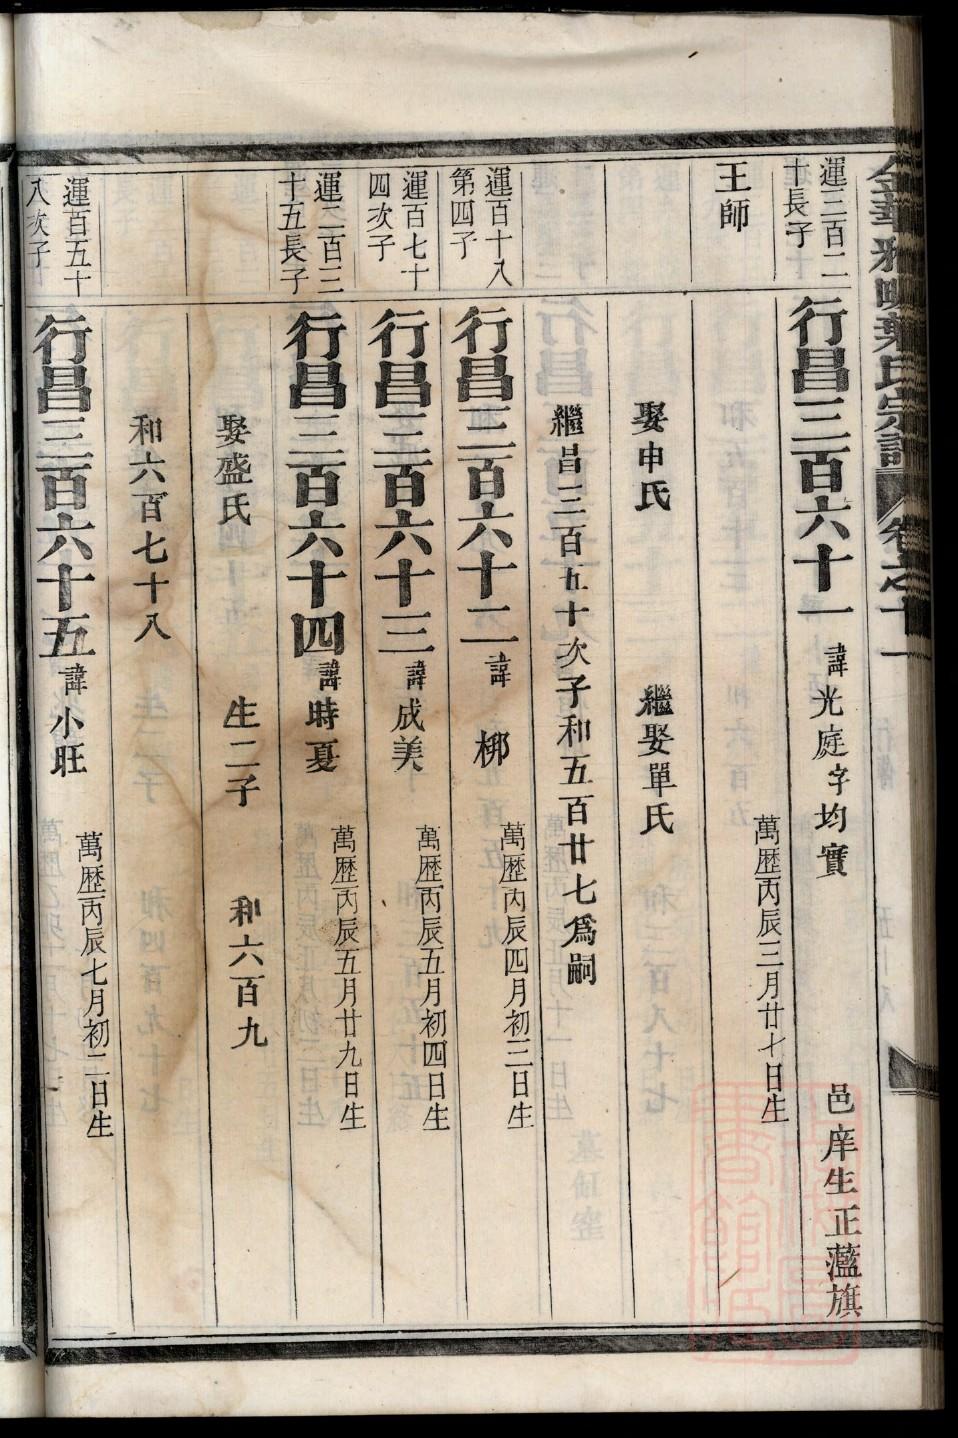 運三百二
十長子
行昌三百六十一 諱光庭字均實 邑庠生正藍旗
王師
萬歷丙辰三月廿七日生
娶申氏 繼娶單氏
繼昌三百五十次子和五百廿七爲嗣
運百十八
第四子
行昌三百六十二 諱柳
萬歷丙辰四月初三日生
運百七十
四次子
行昌三百六十三 諱成美
萬歷丙辰五月初四日生
運二百三
十五長子
行昌三百六十四 諱時夏
萬歷丙辰五月廿九日生
娶盛氏 生二子 和六百九
和六百七十八
運百五十
八次子
行昌三百六十五 諱小旺
萬歷丙辰七月初二日生